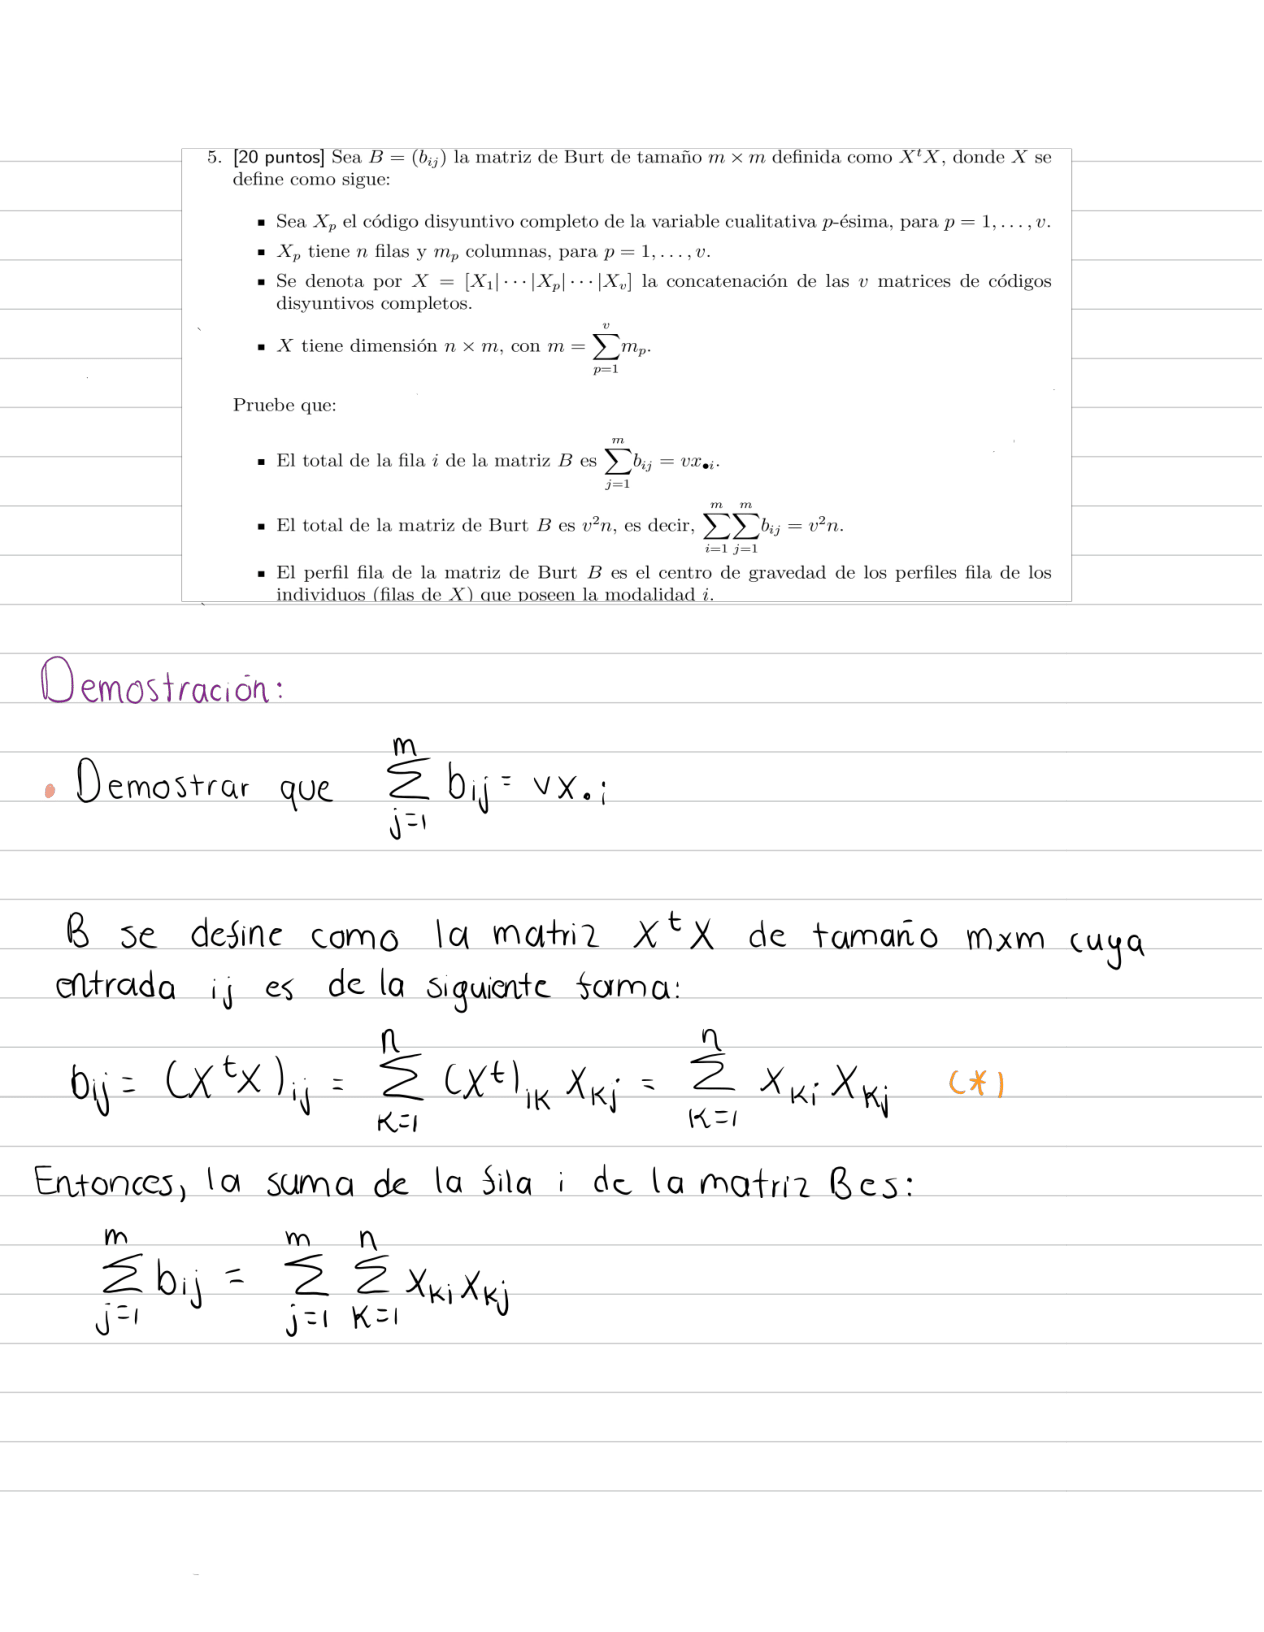 5. [20 puntos] Sea B = (b_{ij}) la matriz de Burt de tamaño m × m definida como X^tX, donde X se
define como sigue:
▪ Sea X_p el código disyuntivo completo de la variable cualitativa p-ésima, para p = 1, . . . , v.
▪ X_p tiene n filas y m_p columnas, para p = 1, . . . , v.
▪ Se denota por X = [X_1| · · · |X_p| · · · |X_v] la concatenación de las v matrices de códigos
disyuntivos completos.
▪ X tiene dimensión n × m, con m = \sum_{p=1}^{v} m_p.
Pruebe que:
▪ El total de la fila i de la matriz B es \sum_{j=1}^{m} b_{ij} = vx_{•i}.
▪ El total de la matriz de Burt B es v^2n, es decir, \sum_{i=1}^{m} \sum_{j=1}^{m} b_{ij} = v^2n.
▪ El perfil fila de la matriz de Burt B es el centro de gravedad de los perfiles fila de los
individuos (filas de X) que poseen la modalidad i.
Demostración:
• Demostrar que \sum_{j=1}^{m} b_{ij} = vx_{•i}
B se define como la matriz X^tX de tamaño mxm cuya
entrada ij es de la siguiente forma:
b_{ij} = (X^tX)_{ij} = \sum_{k=1}^{n} (X^t)_{ik} x_{kj} = \sum_{k=1}^{n} x_{ki} x_{kj} (*)
Entonces, la suma de la fila i de la matriz B es:
\sum_{j=1}^{m} b_{ij} = \sum_{j=1}^{m} \sum_{k=1}^{n} x_{ki} x_{kj}